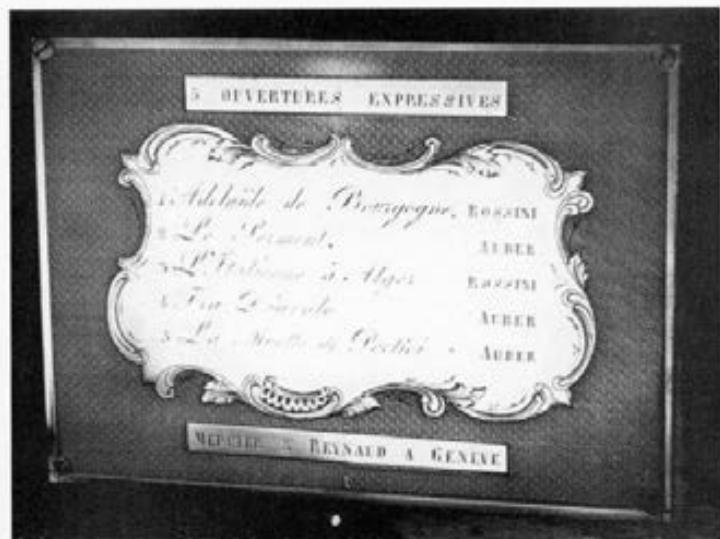 5 OUVERTURES EXPRESSIVES
1 Adelaïde de Bourgogne. ROSSINI
2 Le Serment. AUBER
3 L'Italienne à Alger ROSSINI
4 Fra Diavolo AUBER
5 La Muette de Portici. AUBER
MERCIER & REYNAUD A GENEVE